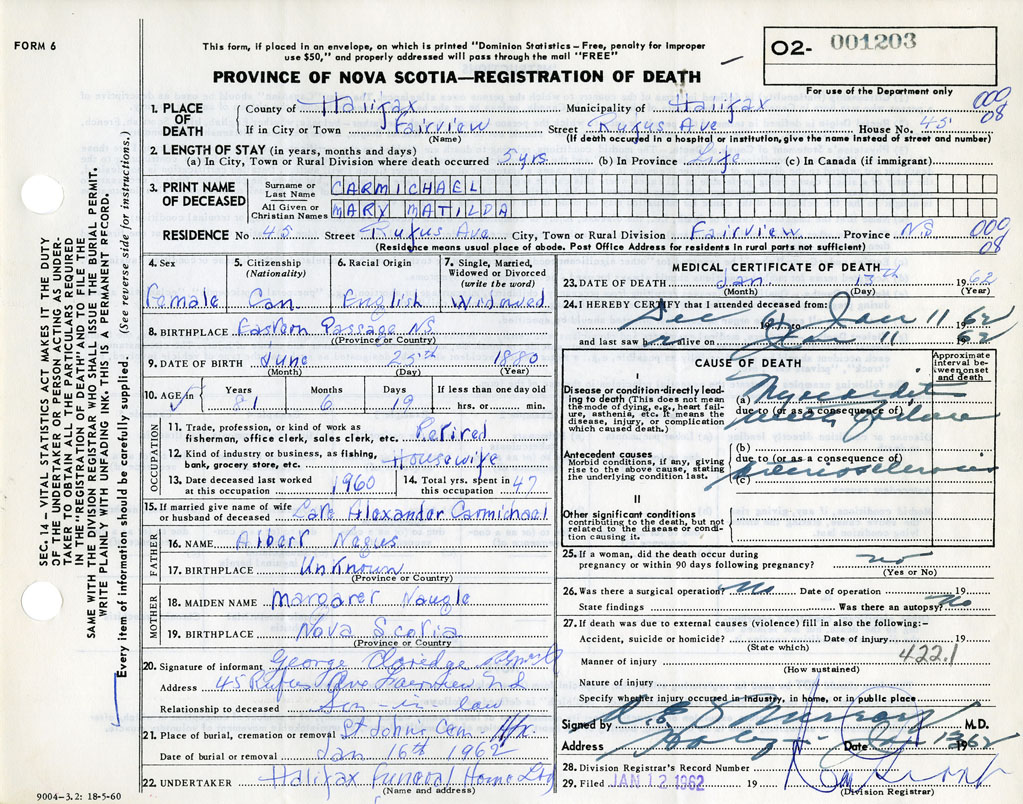 FORM 6
This form, if placed in an envelope, on which is printed "Dominion Statistics – Free, penalty for improper
use $50," and properly addressed will pass through the mail "FREE"
PROVINCE OF NOVA SCOTIA—REGISTRATION OF DEATH
02- 001203
For use of the Department only
SEC. 14 – VITAL STATISTICS ACT MAKES IT THE DUTY
OF THE UNDERTAKER OR PERSON ACTING AS UNDER-
TAKER TO OBTAIN ALL THE PARTICULARS REQUIRED
IN THE "REGISTRATION OF DEATH" AND TO FILE THE
SAME WITH THE DIVISION REGISTRAR WHO SHALL ISSUE THE BURIAL PERMIT.
WRITE PLAINLY WITH UNFADING INK. THIS IS A PERMANENT RECORD.
Every item of information should be carefully supplied. (See reverse side for instructions.)
1. PLACE OF DEATH
County of Halifax Municipality of Halifax 000
If in City or Town Fairview Street Rufus Ave House No. 45 08
(Name) (If death occurred in a hospital or institution, give the name instead of street and number)
2. LENGTH OF STAY (in years, months and days)
(a) In City, Town or Rural Division where death occurred 5 yrs (b) In Province Life (c) In Canada (if immigrant)
3. PRINT NAME OF DECEASED
Surname or Last Name CARMICHAEL
All Given or Christian Names MARY MATILDA
RESIDENCE No 45 Street Rufus Ave City, Town or Rural Division Fairview Province NS 000 08
(Residence means usual place of abode. Post Office Address for residents in rural parts not sufficient)
4. Sex 5. Citizenship (Nationality) 6. Racial Origin 7. Single, Married, Widowed or Divorced (write the word)
Female Can English Widowed
8. BIRTHPLACE Eastern Passage NS
(Province or Country)
9. DATE OF BIRTH June 25th 1880
(Month) (Day) (Year)
10. AGE in Years Months Days If less than one day old
81 6 19 hrs. or min.
OCCUPATION
11. Trade, profession, or kind of work as fisherman, office clerk, sales clerk, etc. Retired
12. Kind of industry or business, as fishing, bank, grocery store, etc. Housewife
13. Date deceased last worked at this occupation 1960 14. Total yrs. spent in this occupation 47
15. If married give name of wife or husband of deceased Late Alexander Carmichael
FATHER
16. NAME Albert Negus
17. BIRTHPLACE Unknown
(Province or Country)
MOTHER
18. MAIDEN NAME Margaret Naugle
19. BIRTHPLACE Nova Scotia
(Province or Country)
20. Signature of informant George
Address 45 Rufus Ave Fairview N S
Relationship to deceased Son-in law
21. Place of burial, cremation or removal St John's Cem Hfx.
Date of burial or removal Jan 16th 1962
22. UNDERTAKER Halifax Funeral Home Ltd
(Name and address)
9004-3.2: 18-5-60
MEDICAL CERTIFICATE OF DEATH
23. DATE OF DEATH Jan 13th 1962
(Month) (Day) (Year)
24. I HEREBY CERTIFY that I attended deceased from:
Dec 61 to Jan 11 1962
and last saw h er alive on Jan 11 1962
CAUSE OF DEATH
Approximate interval between onset and death
I
Disease or condition directly leading to death (This does not mean the mode of dying, e.g., heart failure, asthenia, etc. It means the disease, injury, or complication which caused death.)
(a) Myocarditis
due to (or as a consequence of)
Antecedent causes
Morbid conditions, if any, giving rise to the above cause, stating the underlying condition last.
(b)
due to (or as a consequence of)
(c) arteriosclerosis
II
Other significant conditions
contributing to the death, but not related to the disease or condition causing it.
25. If a woman, did the death occur during pregnancy or within 90 days following pregnancy? no
(Yes or No)
26. Was there a surgical operation? No Date of operation 19
State findings Was there an autopsy? No
27. If death was due to external causes (violence) fill in also the following:–
Accident, suicide or homicide? Date of injury 19
(State which) 422.1
Manner of injury
(How sustained)
Nature of injury
Specify whether injury occurred in industry, in home, or in public place
Signed by Murray M.D.
Address Date Jan 13 1962
28. Division Registrar's Record Number
29. Filed JAN 12 1962 19
(Division Registrar)